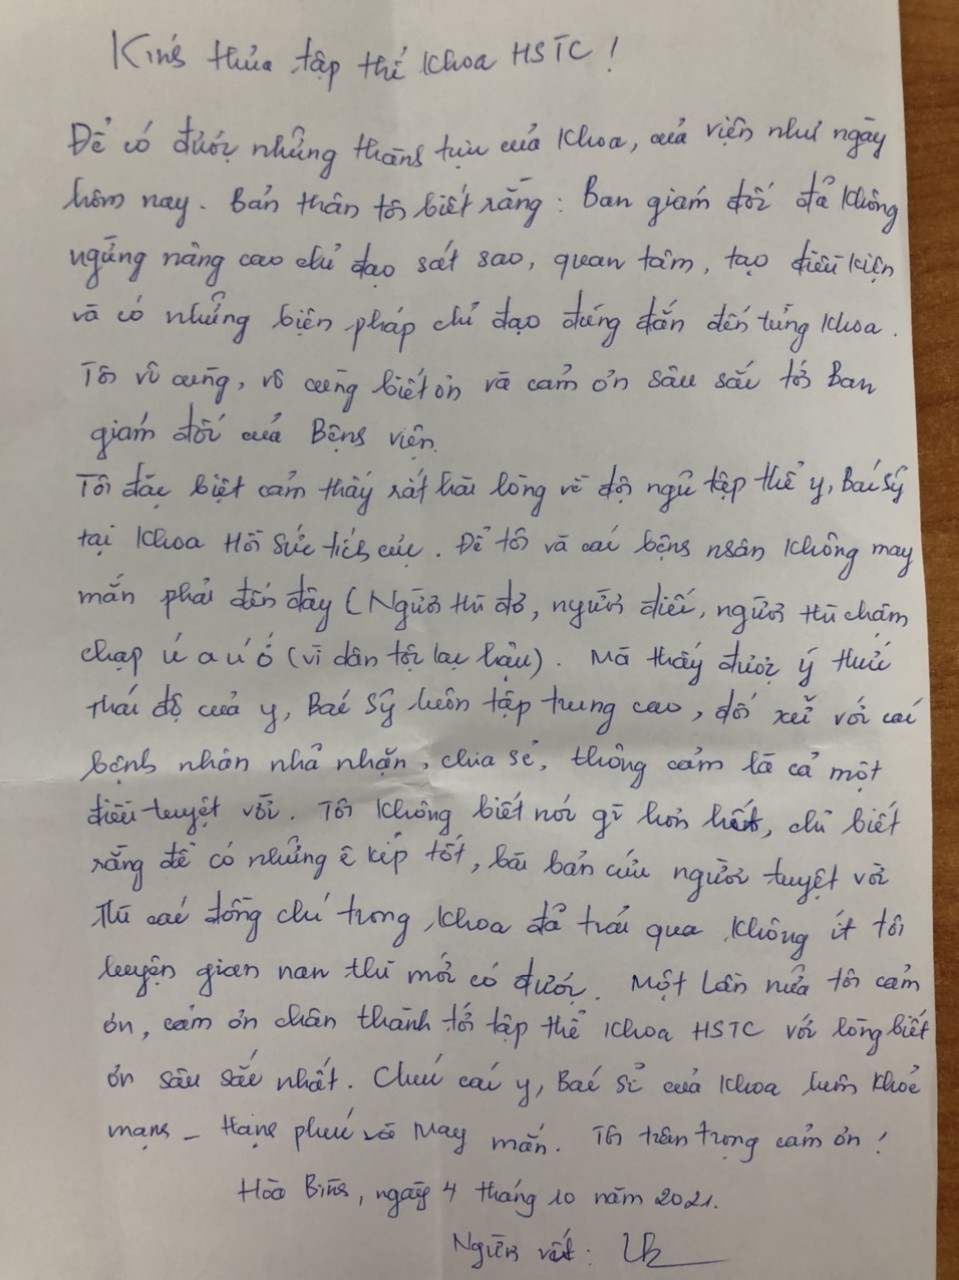 Kính thưa tập thể khoa HSTC!
Để có được những thành tựu của khoa, của viện như ngày
hôm nay. Bản thân tôi biết rằng: Ban giám đốc đã không
ngừng nâng cao chỉ đạo sát sao, quan tâm, tạo điều kiện
và có những biện pháp chỉ đạo đúng đắn đến từng khoa.
Tôi vô cùng, vô cùng biết ơn và cảm ơn sâu sắc tới Ban
giám đốc của Bệnh viện.
Tôi đặc biệt cảm thấy rất hài lòng về đội ngũ tập thể y, Bác Sỹ
tại khoa Hồi Sức tích cực. Để tôi và các bệnh nhân không may
mắn phải đến đây (Người thì đơ, người điếc, người thì chậm
chạp ú a ú ớ (vì dân tộc lạc hậu). Mà thấy được ý thức
thái độ của y, Bác Sỹ luôn tập trung cao, đối xử với các
bệnh nhân nhã nhặn, chia sẻ, thông cảm là cả một
điều tuyệt vời. Tôi không biết nói gì hơn hết, chỉ biết
rằng để có những ê kíp tốt, bài bản cứu người tuyệt vời
thì các đồng chí trong khoa đã trải qua không ít tôi
luyện gian nan thì mới có được. Một lần nữa tôi cảm
ơn, cảm ơn chân thành tới tập thể khoa HSTC với lòng biết
ơn sâu sắc nhất. Chúc các y, Bác sĩ của khoa luôn khoẻ
mạnh - Hạnh phúc và May mắn. Tôi trân trọng cảm ơn!
Hòa Bình, ngày 4 tháng 10 năm 2021.
Người viết: